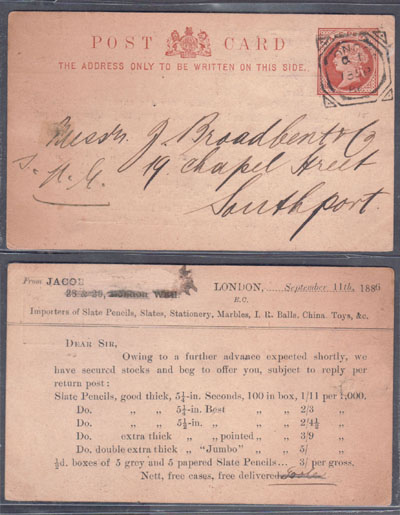 POST CARD
THE ADDRESS ONLY TO BE WRITTEN ON THIS SIDE.
Messrs. J. Broadbent & Co
19 Chapel Street
Southport.
From JACOB
28 & 29, LONDON WALL
LONDON, September 11th, 1886
E.C.
Importers of Slate Pencils, Slates, Stationery, Marbles, I. R. Balls, China Toys, &c.
DEAR SIR,
Owing to a further advance expected shortly, we
have secured stocks and beg to offer you, subject to reply per
return post:
Slate Pencils, good thick, 5¼-in. Seconds, 100 in box, 1/11 per 1,000.
Do. „ „ 5¼-in. Best „ „ 2/3 „
Do. „ „ 5½-in. „ „ „ 2/4½ „
Do. extra thick „ „ pointed „ „ 3/9 „
Do. double extra thick „ "Jumbo" „ „ 5/ „
½d. boxes of 5 grey and 5 papered Slate Pencils ... 3/ per gross.
Nett, free cases, free delivered